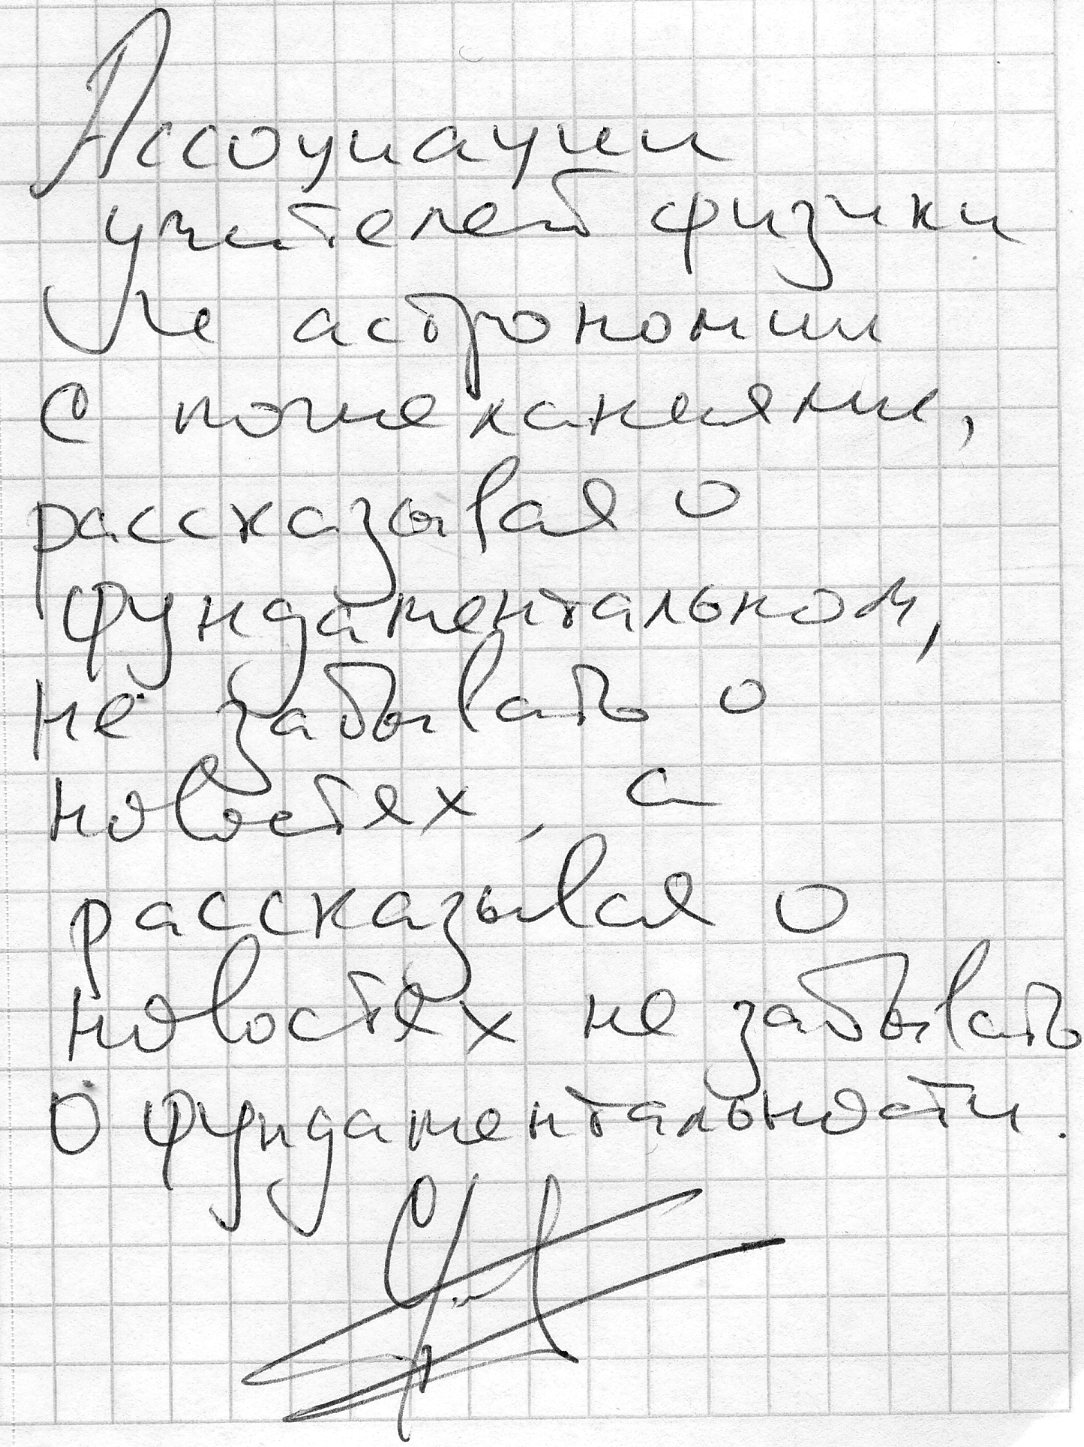 Ассоциации
учителей физики
и астрономии
с пожеланиями,
рассказывая о
фундаментальном,
не забывать о
новостях, а
рассказывая о
новостях не забывать
о фундаментальности.